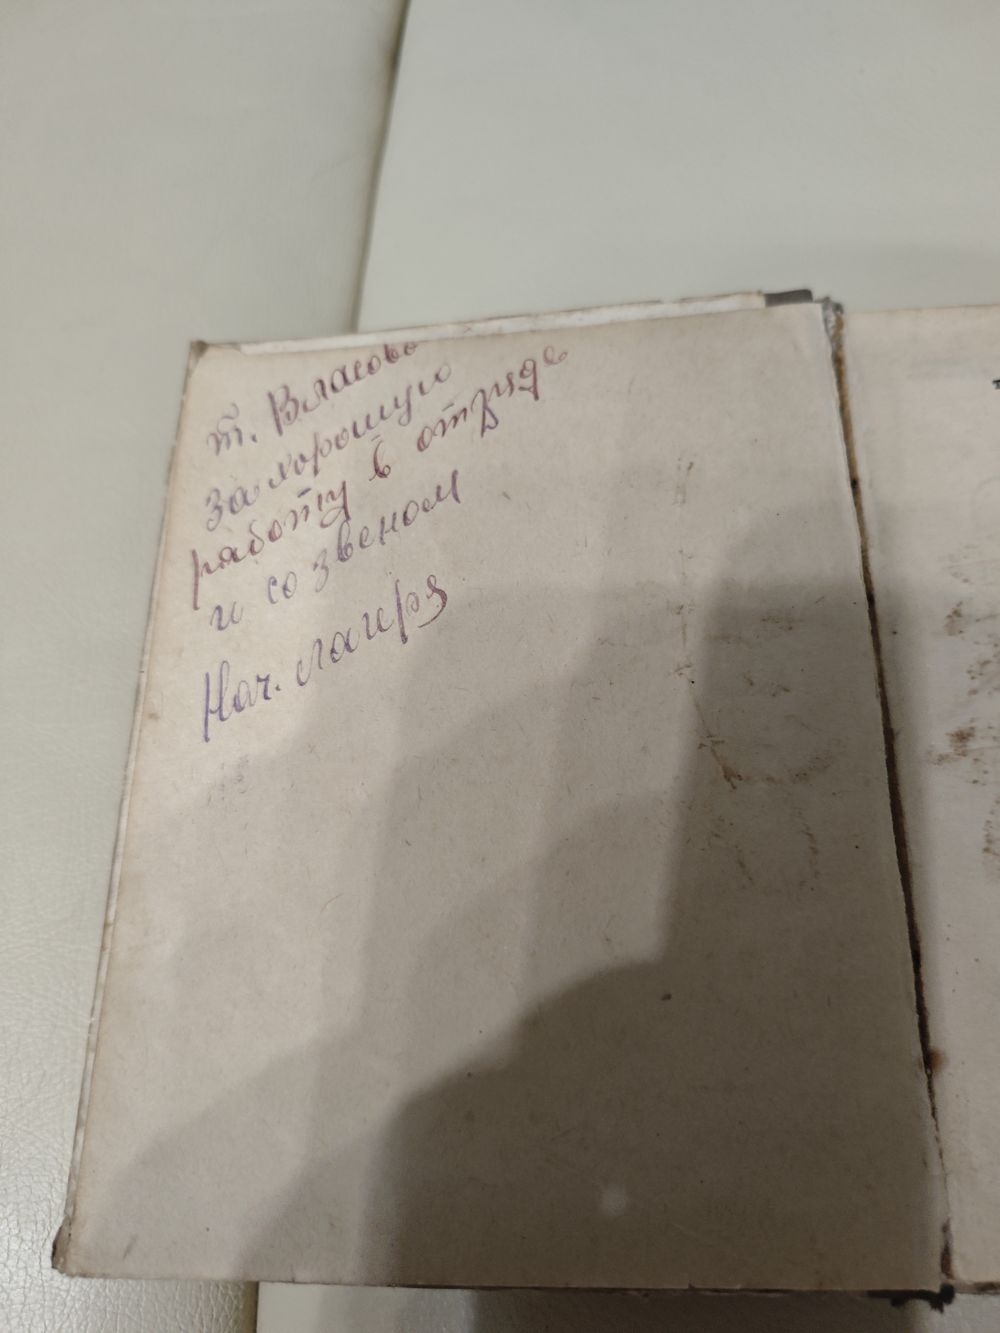 т. Власово
за хорошую
работу в отряде
и со звеном
Нач. лагеря